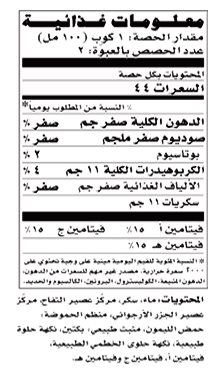 معلومات غذائية
مقدار الحصة: ١ كوب (١٠٠ مل)
عدد الحصص بالعبوة: ٢
المحتويات بكل حصة
السعرات ٤٤
% النسبة من المطلوب يومياً*
الدهون الكلية صفر جم صفر %
صوديوم صفر ملجم صفر %
بوتاسيوم ٢ %
الكربوهيدرات الكلية ١١ جم ٤ %
الألياف الغذائية صفر جم صفر %
سكريات ١١ جم
فيتامين أ ١٥% فيتامين ج ١٥%
فيتامين هـ ١٥%
* النسبة المئوية للقيم اليومية مبنية على وجبة تحتوي على
٢٠٠٠ سعرة حرارية. مصدر غير مهم للسعرات من الدهون،
الدهون المشبعة، الكوليسترول، البروتين، الكالسيوم والحديد.
المحتويات: ماء، سكر، مركز عصير التفاح، مركز
عصير الجزر الأرجواني، منظم الحموضة:
حمض الليمون، مثبت طبيعي: بكتين، نكهة حلوة
طبيعية، نكهة حلوى الخطمي الطبيعية،
فيتامين أ، فيتامين ج وفيتامين هـ.